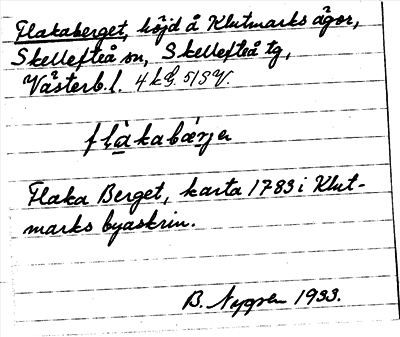 Flakaberget, höjd å Klutmarks ägor,
Skellefteå sn, Skellefteå tg,
Västerb. l.
flàkabærje
Flaka Berget, karta 1783 i Klut-
marks byaskrin.
B. Nygren 1933.